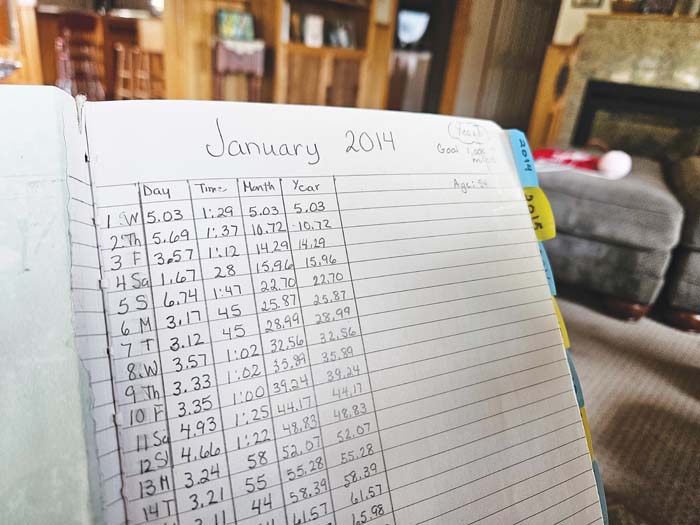 January 2014
Year 1
Goal
miles
Age: 54
Day Time Month Year
1 W 5.03 1:29 5.03 5.03
2 Th 5.69 1:37 10.72 10.72
3 F 3.57 1:12 14.29 14.29
4 Sa 1.67 28 15.96 15.96
5 S 6.74 1:47 22.70 22.70
6 M 3.17 45 25.87 25.87
7 T 3.12 45 28.99 28.99
8 W 3.57 1:02 32.56 32.56
9 Th 3.33 1:02 35.89 35.89
10 F 3.35 1:00 39.24 39.24
11 Sa 4.93 1:25 44.17 44.17
12 S 4.66 1:22 48.83 48.83
13 M 3.24 58 52.07 52.07
14 T 3.21 55 55.28 55.28
3.11 44 58.39 58.39
61.57 61.57
65.98
2014
2015